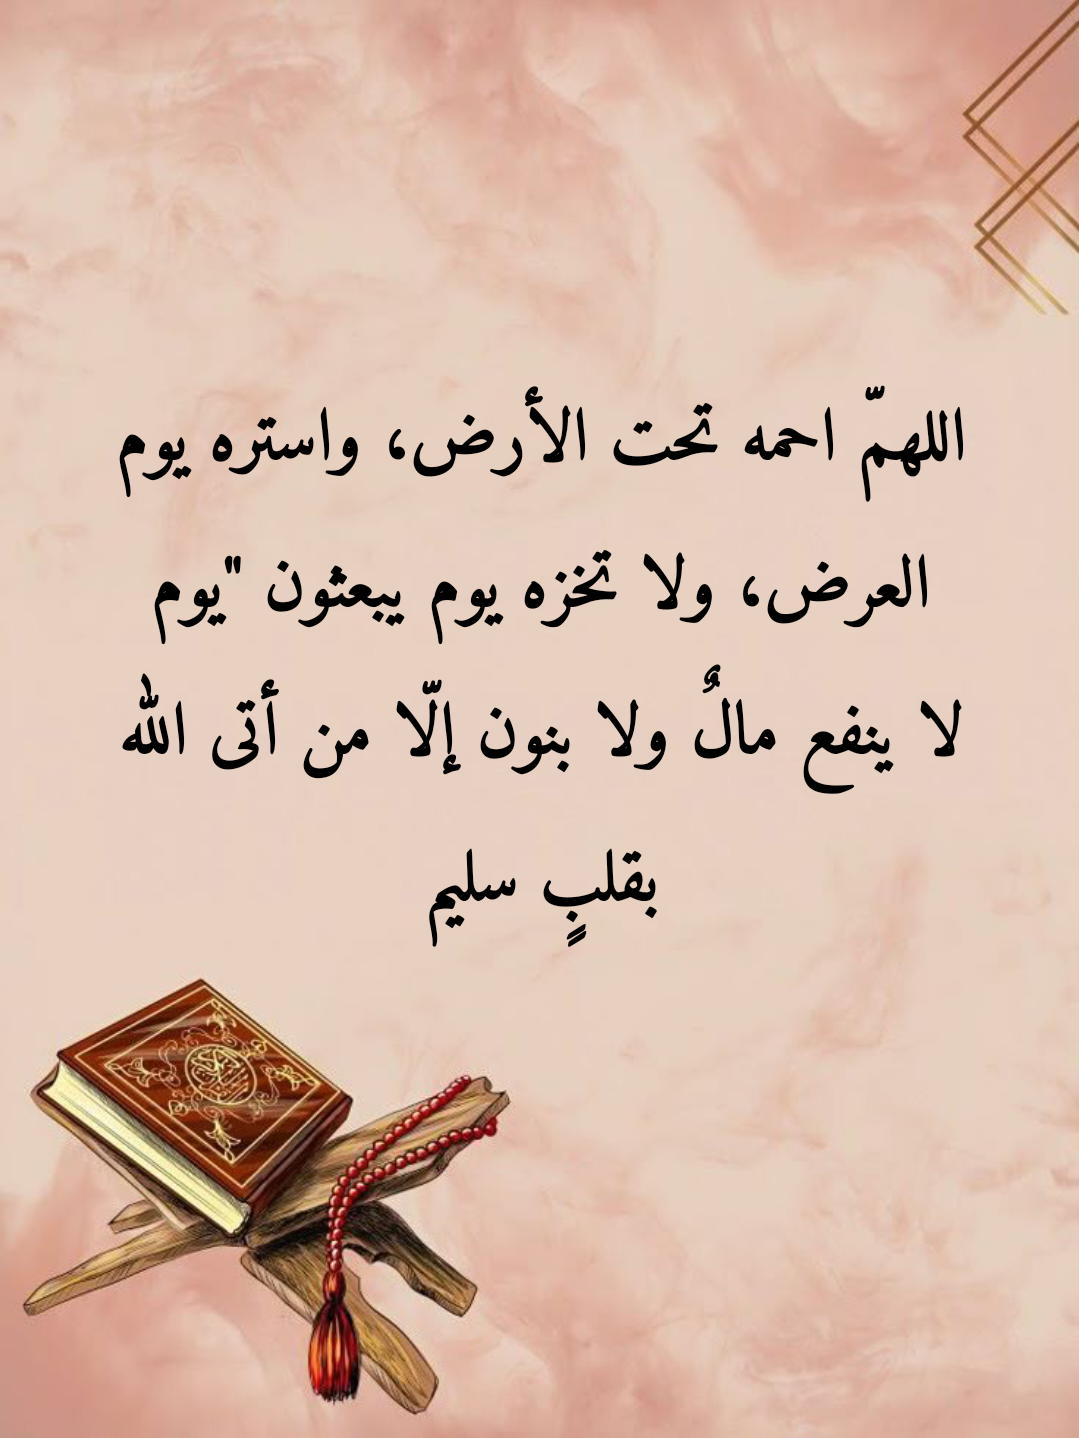 اللهمّ احمه تحت الأرض، واستره يوم
العرض، ولا تخزه يوم يبعثون "يوم
لا ينفع مالٌ ولا بنون إلّا من أتى الله
بقلبٍ سليم